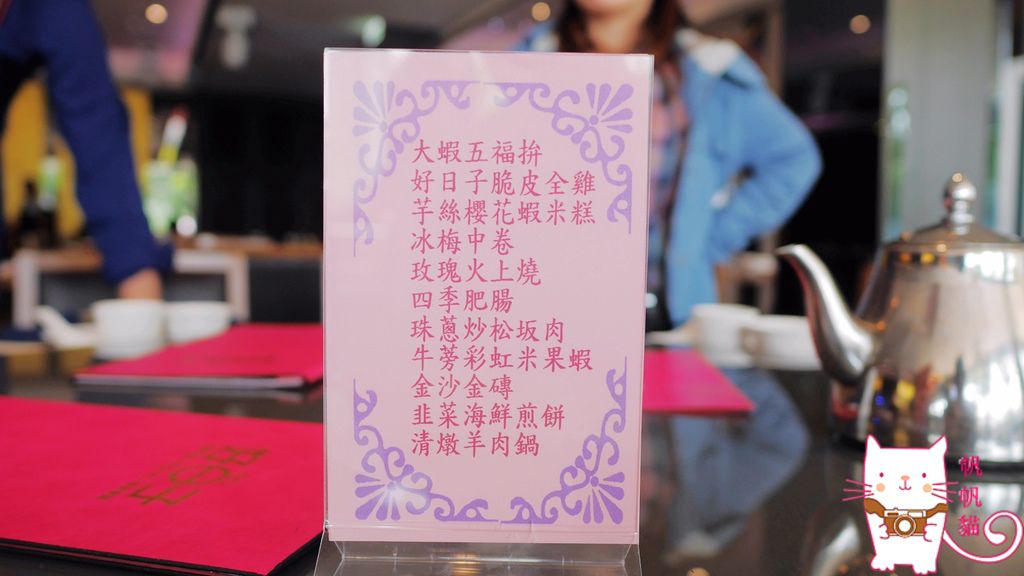 大蝦五福拚
好日子脆皮全雞
芋絲櫻花蝦米糕
冰梅中卷
玫瑰火上燒
四季肥腸
珠蔥炒松坂肉
牛蒡彩虹米果蝦
金沙金磚
韭菜海鮮煎餅
清燉羊肉鍋
帆帆貓